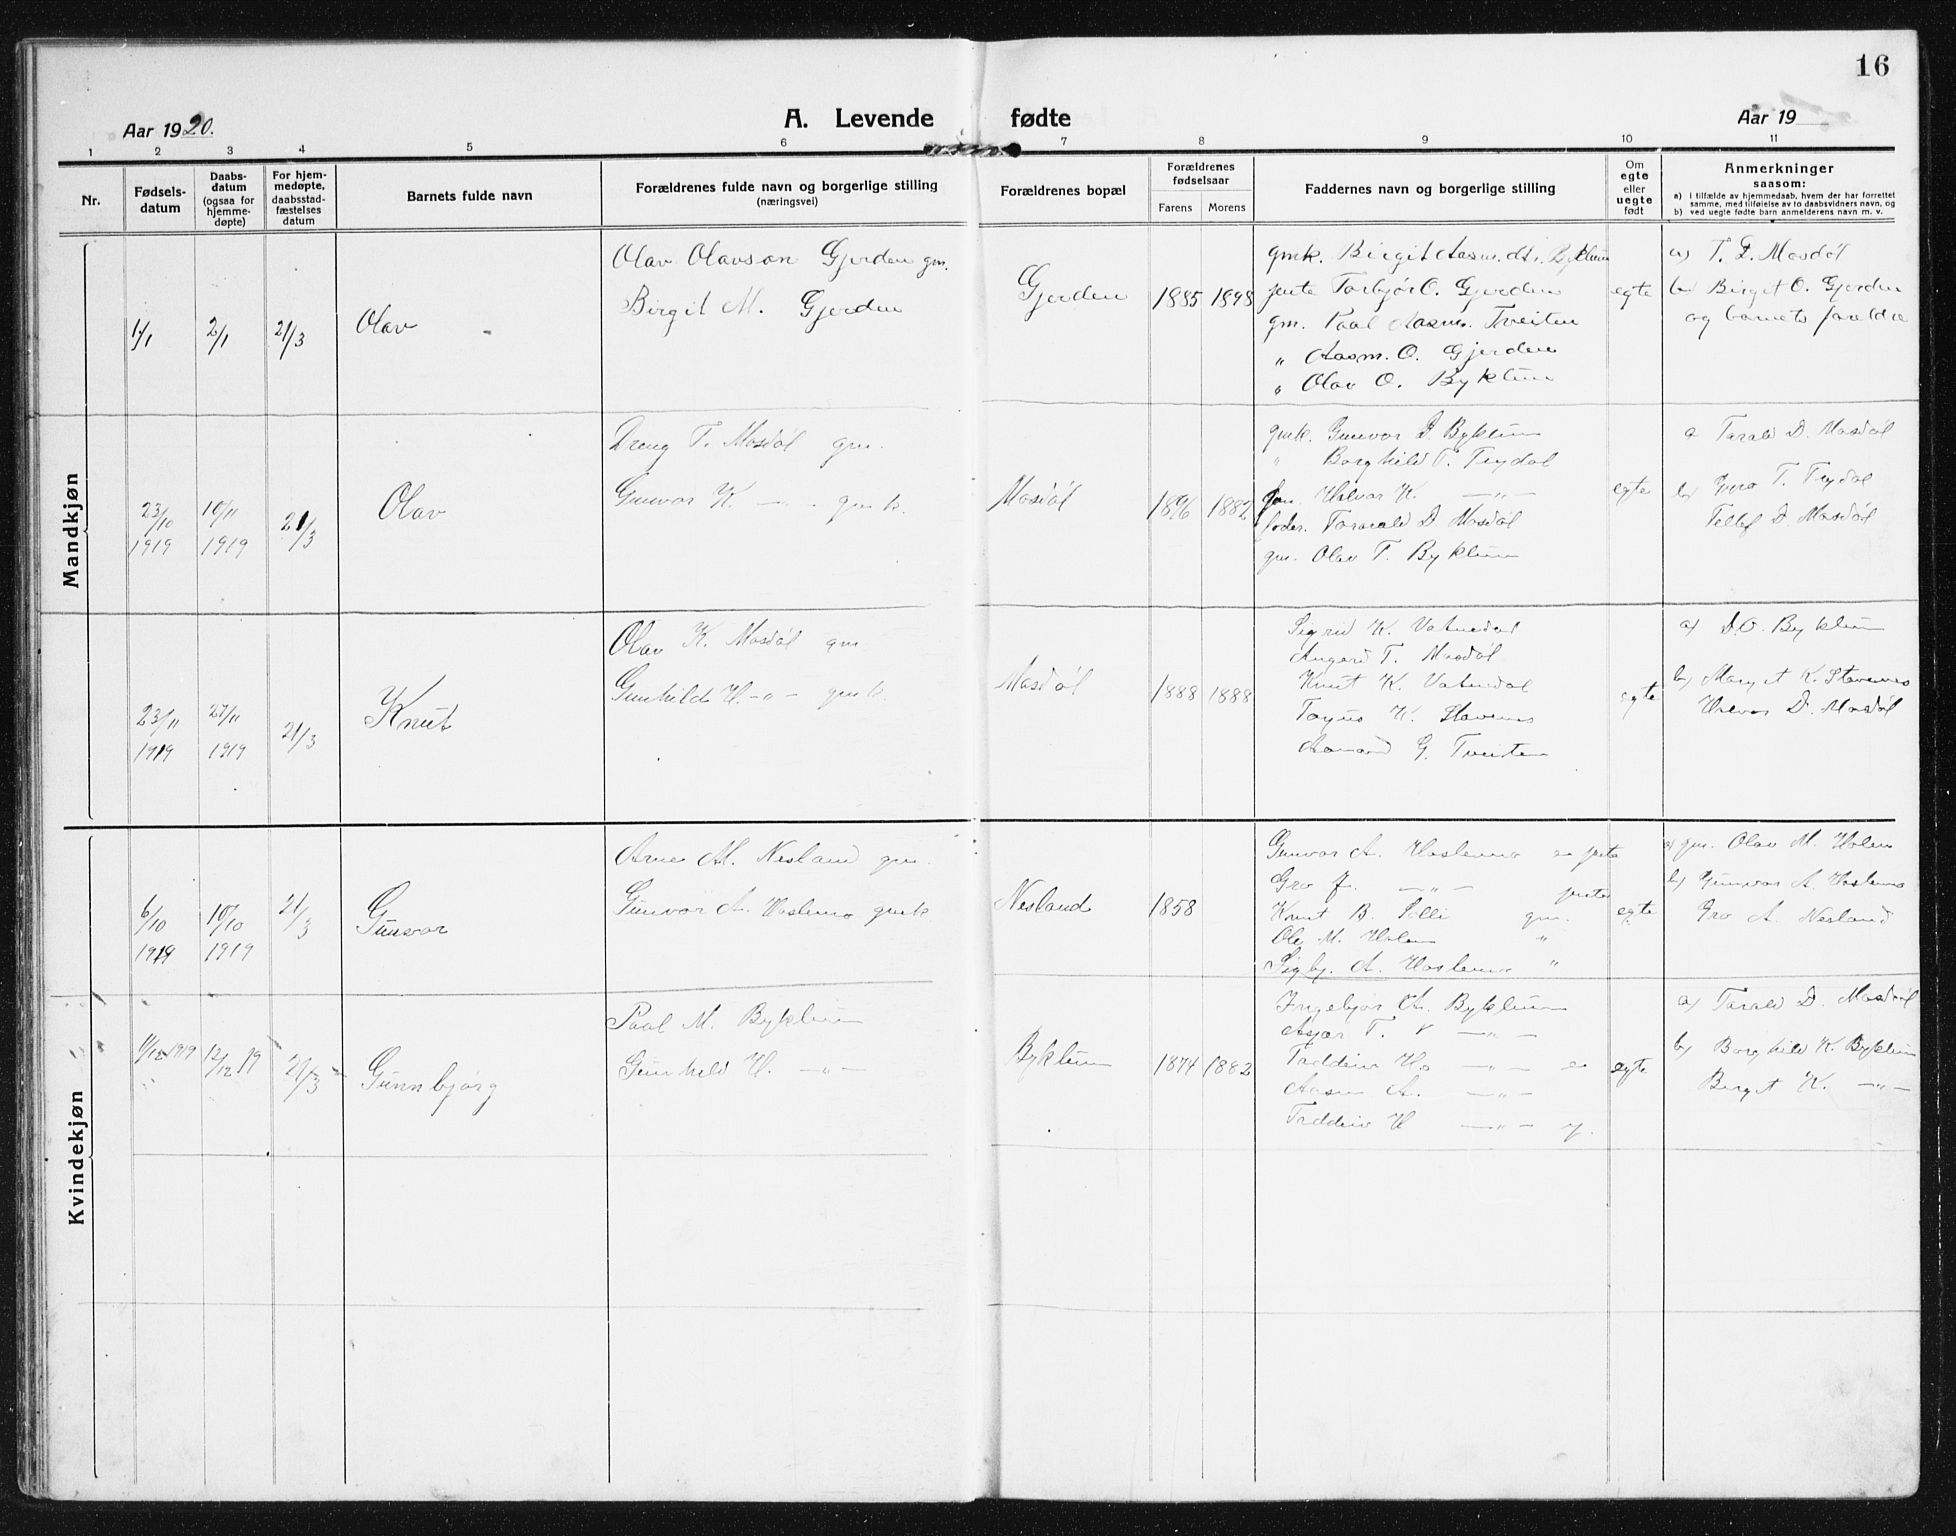 16
Aar 1920.
A. Levende fødte
Aar 19
1 2 3 4 5 6 7 8 9 10 11
Nr.
Fødsels-
datum
Daabs-
datum
(ogsaa for
hjemme-
døpte)
For hjem-
medøpte,
daabsstad-
fæstelses
datum
Barnets fulde navn
Forældrenes fulde navn og borgerlige stilling
(næringsvei)
Forældrenes bopæl
Forældrenes
fødselsaar
Farens Morens
Faddernes navn og borgerlige stilling
Om
egte
eller
uegte
født
Anmerkninger
saasom:
a) i tilfælde av hjemmedaab, hvem der har forrettet
samme, med tilføielse av to daabsvidners navn, og
b) ved uegte fødte barn anmelderens navn m. v.
Mandkjøn
1/1 2/1 21/3 Olav
Olav Olavson Gjerden gm.
Birgit M. Gjerden
Gjerden 1885 1898
gmk. Birgit Aasm.dt. Byklum
jente Torbjør O. Gjerden
gm. Paal Aasm. Tveiten
„ Aasm. O. Gjerden
„ Olav O. Byklum
egte
a) T. D. Mosdøl
b) Birget O. Gjerden
og barnets foreldre
23/10 1919 10/11 1919 21/3 Olav
Dreng T. Mosdøl gm.
Gunvor K. — „ — gmk.
Mosdøl 1896 1882
gmk. Gunvor D. Byklum
„ Borghild T. Trydal
Halvor K. — „ —
Tarald D. Mosdøl
gm. Olav T. Byklum
egte
a Tarald D. Mosdøl
b) T. Trydal
Tellef D. Mosdøl
23/11 1919 27/11 1919 21/3 Knut
Olav K. Mosdøl gm.
Gunhild H. — „ — gmk.
Mosdøl 1888 1888
Sigrid K. Vatnedal
Angerd T. Mosdøl
Knut K. Vatnedal
K. Stavenes
G. Tveiten
egte
a) D. O. Byklum
b) Margit K. Stavenes
Halvor D. Mosdøl
Kvindekjøn
6/10 1919 10/10 1919 21/3 Gunvor
Arne M. Nesland gm.
Gunvor A. Hoslemo gmk.
Nesland 1858
Gunvor A. Hoslemo e jente
Gro J. — „ — jente
Knut B. gm.
Ole M. Holen „
Sigbj. A. Hoslemo „
egte
a) gm. Olav M. Holen
b) Gunvor A. Hoslemo
Gro A. Nesland
11/12 1919 12/12 19 21/3 Gunnbjørg
Paal M. Byklum
Gunhild H. — „ —
Byklum 1874 1882
Ingebjør A. Byklum
T. — „ —
Taddeiv H. — „ — e
Aasm A. — „ —
Taddeiv H — „ — y.
egte
a) Tarald D. Mosdøl
b) Borghild K. Byklum
Birget K. — „ —